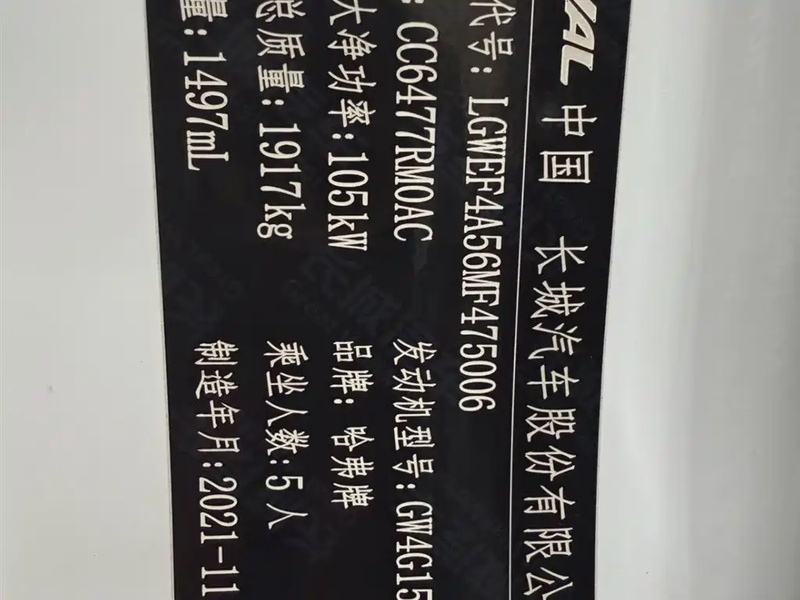 VAL 中国 长城汽车股份有限公
代号: LGWEF4A56MF475006
: CC6477RM0AC 发动机型号: GW4G15
大净功率: 105kW 品牌: 哈弗牌
总质量: 1917kg 乘坐人数: 5人
量: 1497mL 制造年月: 2021-11